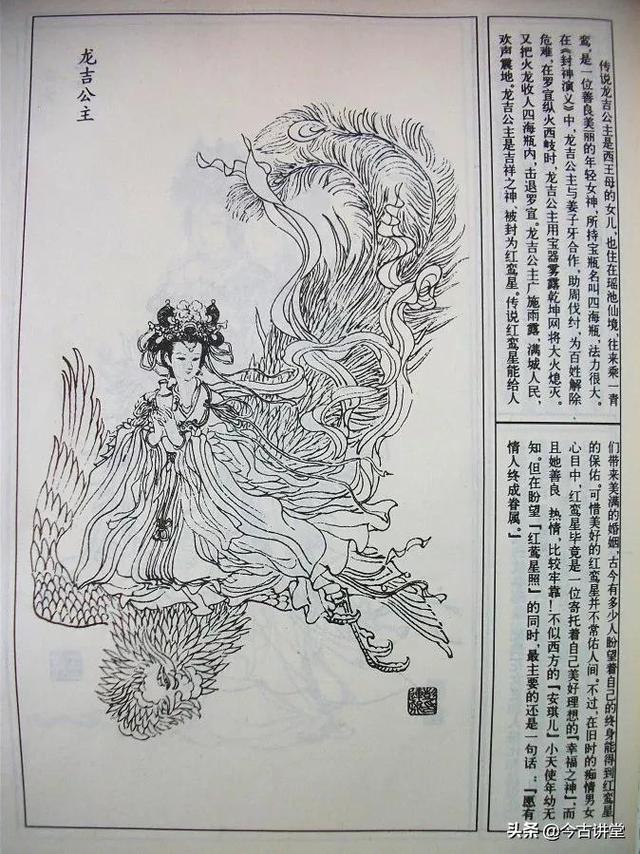 龙吉公主
传说龙吉公主是西王母的女儿，也住在瑶池仙境，往来乘一青
鸾，是一位善良美丽的年轻女神，所持宝瓶名叫四海瓶，法力很大。
在《封神演义》中，龙吉公主与姜子牙合作，助周伐纣，为百姓解除
危难，在罗宣纵火西岐时，龙吉公主用宝器雾露乾坤网将大火熄灭。
又把火龙收人四海瓶内，击退罗宣。龙吉公主广施雨露，满城人民，
欢声震地。龙吉公主是吉祥之神、被封为红鸾星。传说红鸾星能给人
们带来美满的婚姻，古今有多少人盼望着自己的终身能得到红鸾星
的保佑。可惜美好的红鸾星并不常佑人间。不过，在旧时的痴情男女
心目中，红鸾星毕竟是一位寄托着自己美好理想的『幸福之神』，而
且她善良 热情，比较牢靠！不似西方的『安琪儿』小天使年幼无
知。但在盼望『红鸾星照』的同时，最主要的还是一句话：『愿有
情人终成眷属。』
头条 @今古讲堂